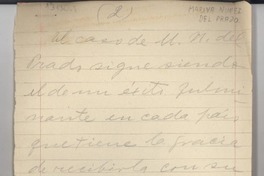 (2)
MARINA NUÑEZ
DEL PRADO
El caso de M. N. del
Prado sigue siendo
el de un éxito fulmi
nante en cada país
que tiene la gracia
de recibirla con su